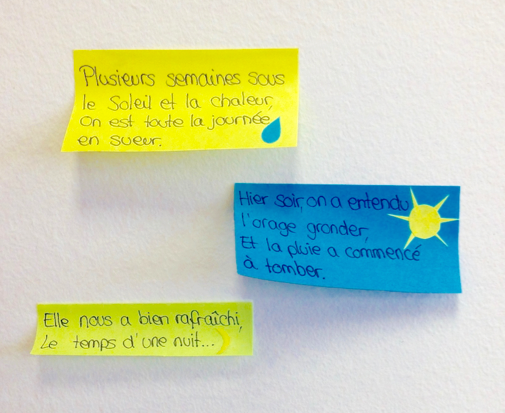 Plusieurs semaines sous
le Soleil et la chaleur,
On est toute la journée
en sueur.
Hier soir, on a entendu
l'orage gronder,
Et la pluie a commencé
à tomber.
Elle nous a bien rafraîchi,
Le temps d'une nuit...